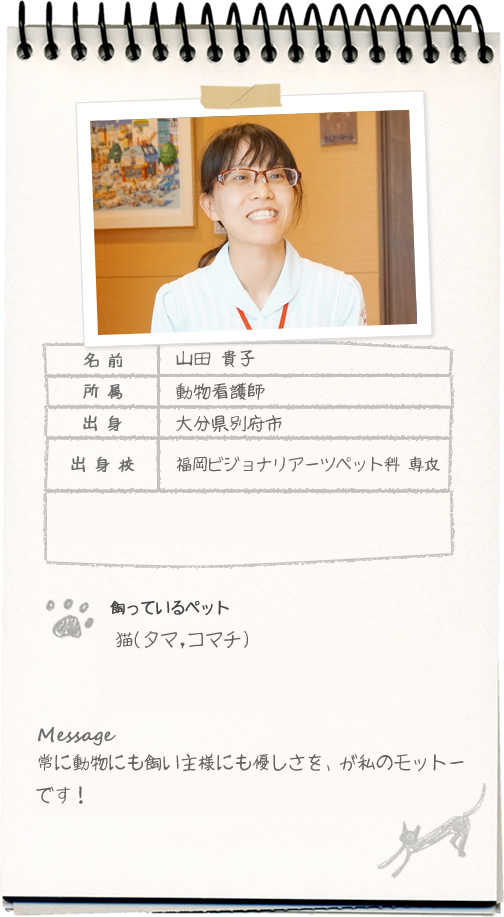 名前 山田 貴子
所属 動物看護師
出身 大分県別府市
出身校 福岡ビジョナリアーツペット科 専攻
飼っているペット
猫(タマ,コマチ)
Message
常に動物にも飼い主様にも優しさを、が私のモットー
です!